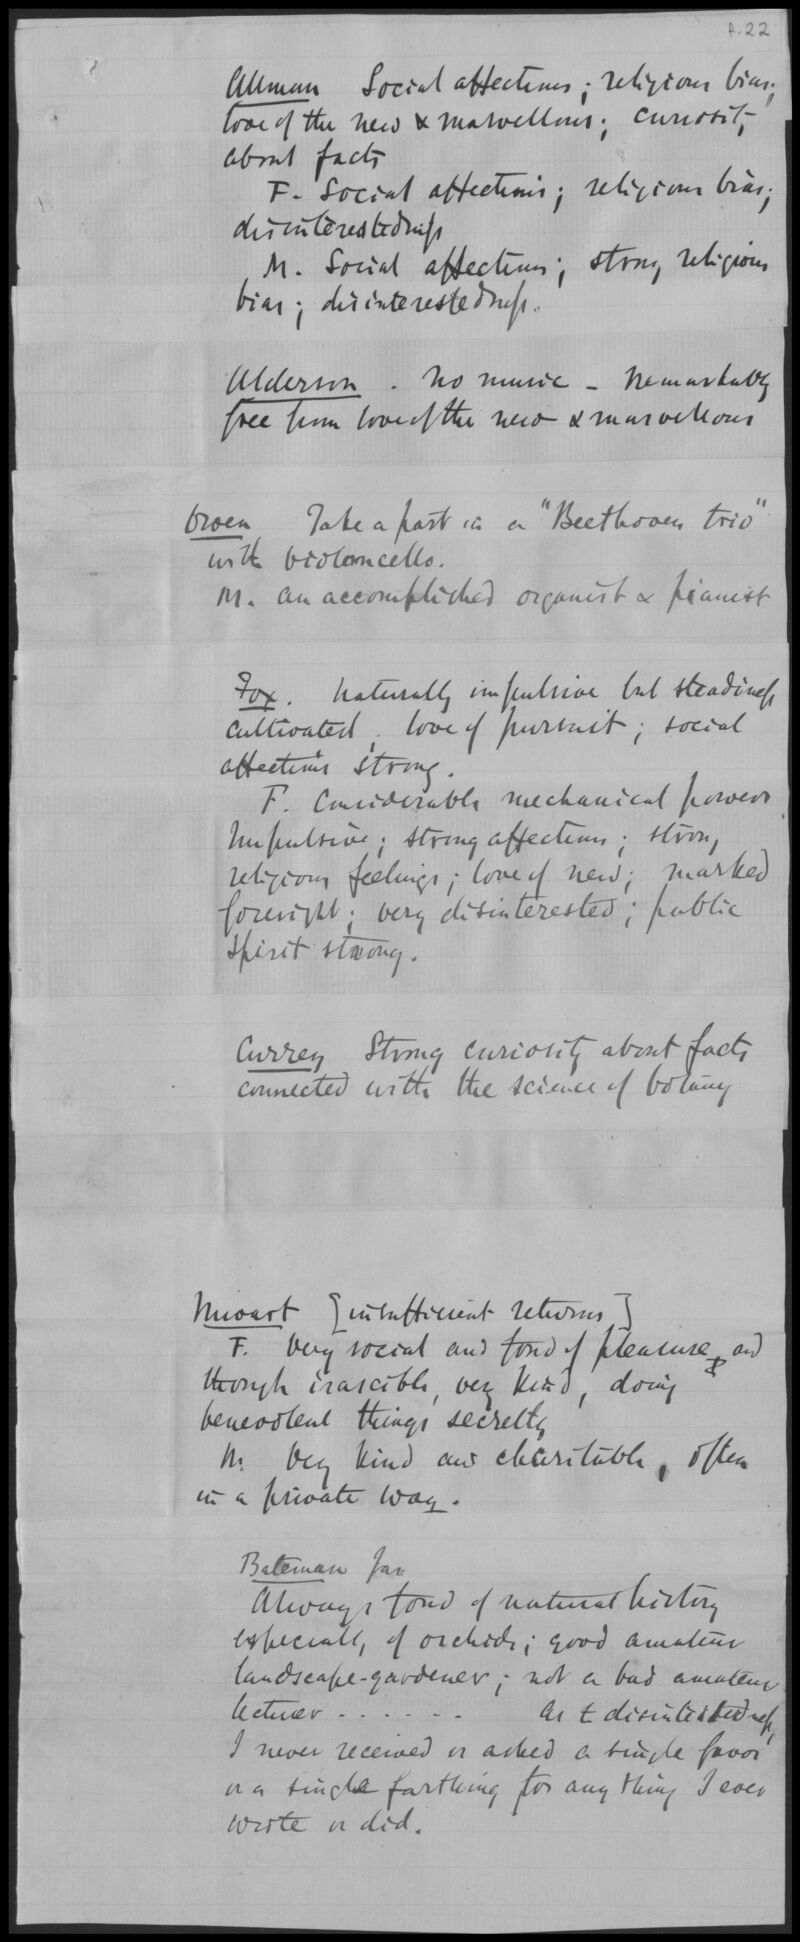 A.22
Allman Social affections; religious bias;
love of the new & marvellous; curiosity
about facts
F. Social affections; religious bias;
disinterestedness
M. Social affections; strong religious
bias; disinterestedness.
Alderson. No music - Remarkably
free from love of the new & marvellous
Owen Take a part in a "Beethoven trio"
with violoncello.
M. an accomplished organist & pianist
Fox. Naturally impulsive but steadiness
cultivated; love of pursuit; social
affections strong.
F. Considerable mechanical powers
Impulsive; strong affections; strong
religious feelings; love of new; marked
foresight; very disinterested; public
spirit strong.
Currey Strong curiosity about facts
connected with the science of botany
Mivart [insufficient returns]
F. Very social and fond of pleasure, and
though irascible, very kind, doing
benevolent things secretly
M. Very kind and charitable, often
in a private way.
Bateman Jas
Always fond of natural history
especially of orchids; good amateur
landscape-gardener; not a bad amateur
lecturer - - - - - - As t disinterestedness,
I never received or asked a single favor
or a single farthing for any thing I ever
wrote or did.